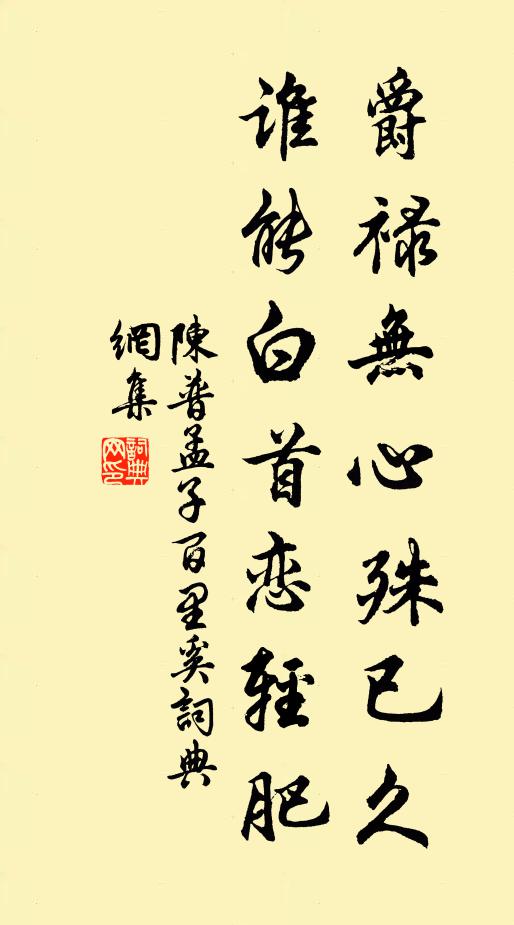 爵禄無心殊已久
谁能白首恋輕肥
陳普孟子百里奚詞典
網集
詞典
网印